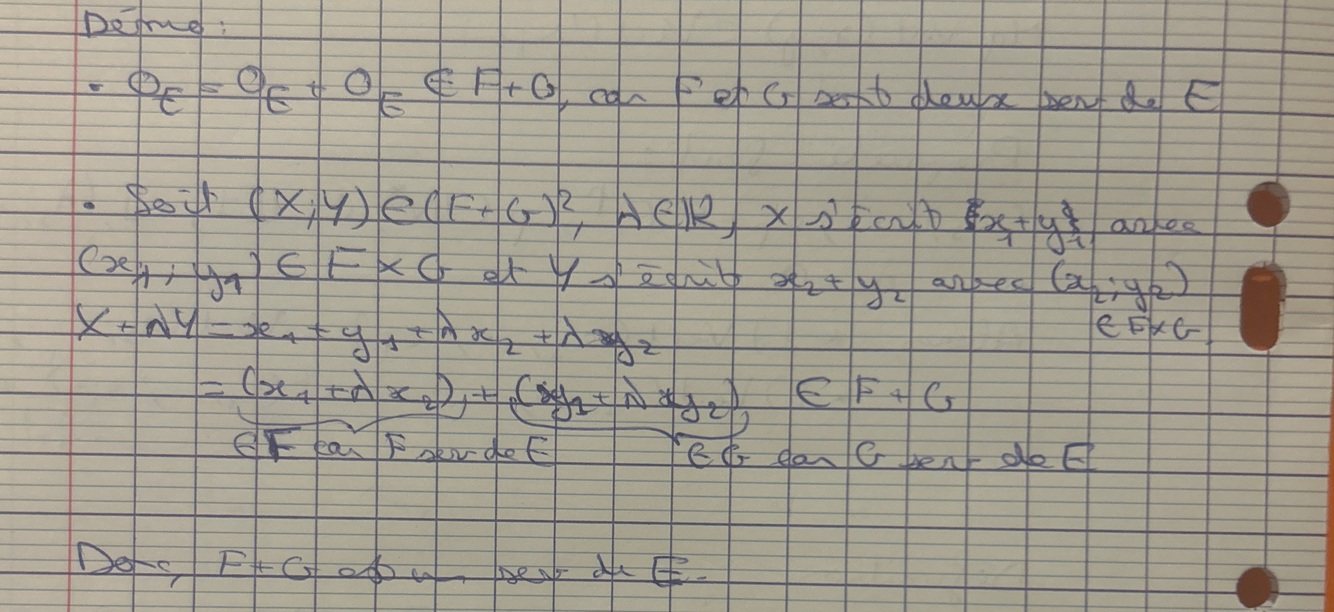 Démo :
• 0_E = 0_E + 0_E ∈ F+G, car F et G sont deux sev de E
• Soit (X;Y) ∈ (F+G)², λ∈ℝ, X s'écrit x₁+y₁ avec
(x₁; y₁) ∈ F×G et Y s'écrit x₂+y₂ avec (x₂;y₂)
∈ F×G
X+λY = x₁ + y₁ + λx₂ + λy₂
= (x₁ + λx₂) + (y₁ + λy₂) ∈ F+G
∈F car F sev de E ∈G car G sev de E
Donc, F+G est un sev de E.